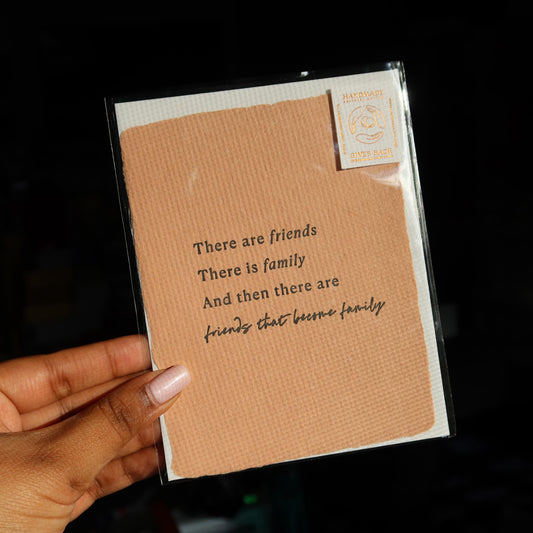 HANDMADE
RIVER BABE
There are friends
There is family
And then there are
friends that become family